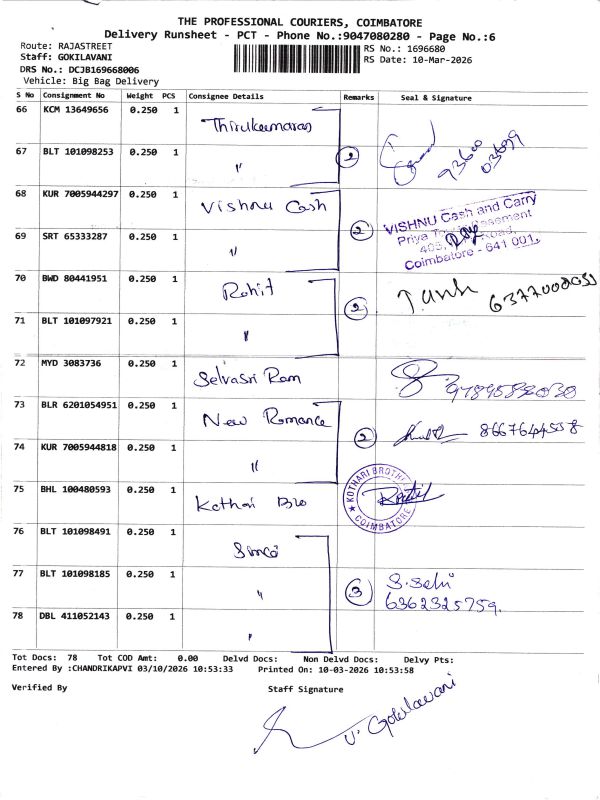 THE PROFESSIONAL COURIERS, COIMBATORE
Delivery Runsheet - PCT - Phone No.:9047080280 - Page No.:6
Route: RAJASTREET
RS No.: 1696680
Staff: GOKILAVANI
RS Date: 10-Mar-2026
DRS No.: DCJB169668006
Vehicle: Big Bag Delivery
S No Consignment No Weight PCS Consignee Details Remarks Seal & Signature
66 KCM 13649656 0.250 1 Thirukumaran
67 BLT 101098253 0.250 1 " 2
68 KUR 7005944297 0.250 1 Vishnu Cash
VISHNU Cash and Carry
69 SRT 65333287 0.250 1 " 2
Coimbatore - 641 001.
70 BWD 80441951 0.250 1 Rohit 2
71 BLT 101097921 0.250 1 "
72 MYD 3083736 0.250 1 Selvasri Ram
73 BLR 6201054951 0.250 1 New Romance 2
74 KUR 7005944818 0.250 1 "
75 BHL 100480593 0.250 1 Kothari Bro
KOTHARI BROTHE
COIMBATORE
76 BLT 101098491 0.250 1
77 BLT 101098185 0.250 1 " 3
6362325759.
78 DBL 411052143 0.250 1 "
Tot Docs: 78 Tot COD Amt: 0.00 Delvd Docs: Non Delvd Docs: Delvy Pts:
Entered By :CHANDRIKAPVI 03/10/2026 10:53:33 Printed On: 10-03-2026 10:53:58
Verified By Staff Signature
V. Gokilavani